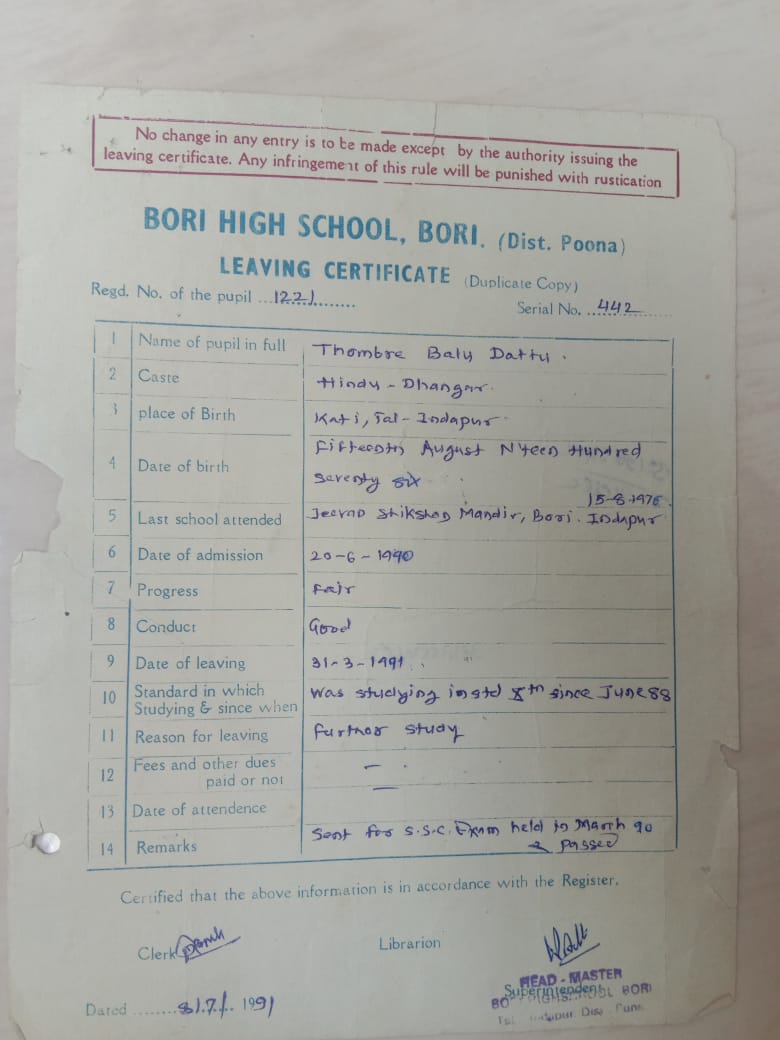 No change in any entry is to be made except by the authority issuing the
leaving certificate. Any infringement of this rule will be punished with rustication
BORI HIGH SCHOOL, BORI. (Dist. Poona)
LEAVING CERTIFICATE (Duplicate Copy)
Regd. No. of the pupil ...1221........
Serial No. ...442.......
1 Name of pupil in full Thombre Balu Dattu.
2 Caste Hindu - Dhangar.
3 place of Birth Kati, Tal - Indapur.
4 Date of birth Fifteenth August N'teen Hundred
Seventy six
15-8-1976.
5 Last school attended Jeevan Shikshan Mandir, Bori. Indapur
6 Date of admission 20-6-1990
7 Progress Fair
8 Conduct Good
9 Date of leaving 31-3-1991.
10 Standard in which
Studying & since when was studying in std 8th since June 88
11 Reason for leaving Further study
12 Fees and other dues
paid or not - .
13 Date of attendence —
14 Remarks Sent for S.S.C. Exam held in March 90
& passed
Certified that the above information is in accordance with the Register.
Clerk
Librarion
HEAD - MASTER
Superintendent
BORI
Dated 1991